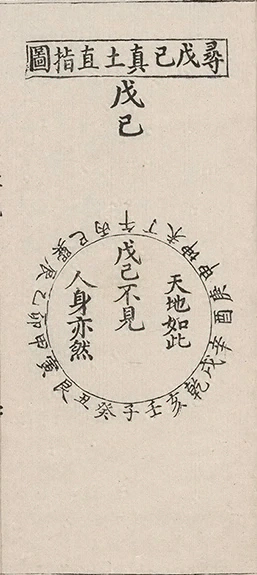 尋戊己真土直指圖
戊己
午丁未坤申庚酉辛戌乾亥壬子癸丑艮寅甲卯乙辰巽巳丙
天地如此
戊己不見
人身亦然